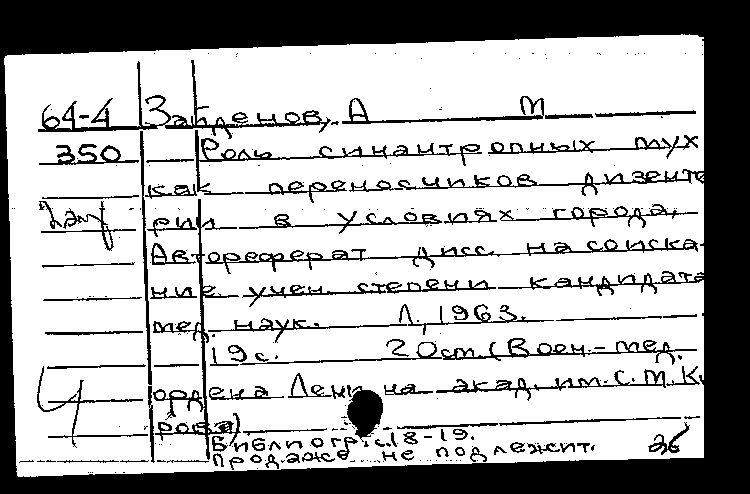 64-4 Зайденов, А М
350 Роль синантропных мух
как переносчиков дизенте
рии в условиях города,
Автореферат дисс. на соиска-
ние учен. степени кандидата
мед. наук. Л., 1963.
19с. 20см. (Воен.-мед.
ордена Ленина акад. им. С.М.К.
рова)
Библиогр: с.18-19.
Продаже не подлежит. 36